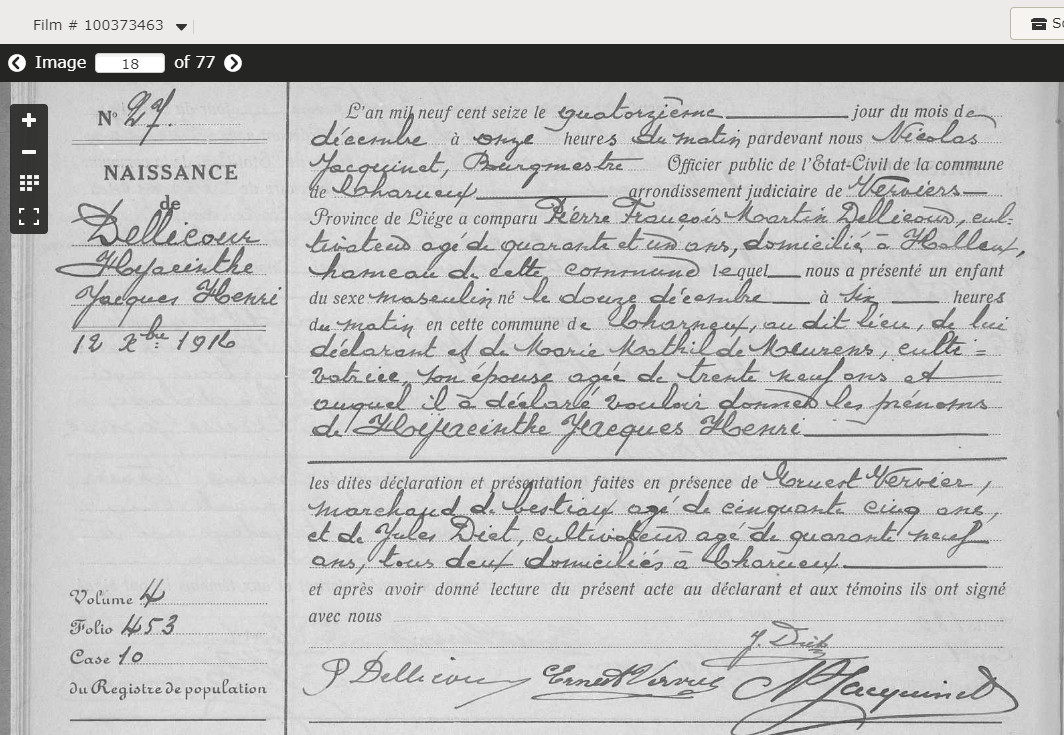 Film # 100373463
Image 18 of 77
N° 27.
NAISSANCE
de
Dellicour
Hyacinthe
Jacques Henri
12 Xbre 1916
Volume 4
Folio 453
Case 10
du Registre de population
L'an mil neuf cent seize le quatorzième jour du mois de
décembre à onze heures du matin pardevant nous Nicolas
Jacquinet, Bourgmestre Officier public de l'Etat-Civil de la commune
de Charneux arrondissement judiciaire de Verviers
Province de Liége a comparu Pierre François Martin Dellicour, cul-
tivateur agé de quarante et un ans, domicilié à Halleux,
hameau de cette commune lequel nous a présenté un enfant
du sexe masculin né le douze décembre à six heures
du matin en cette commune de Charneux, au dit lieu, de lui
déclarant et de Marie Mathilde Meurens, culti=
vatrice, son épouse agée de trente neuf ans et
auquel il a déclaré vouloir donner les prénoms
de Hyacinthe Jacques Henri
les dites déclaration et présentation faites en présence de Ernest Vervier,
marchand de bestiaux agé de cinquante cinq ans,
et de Jules Diet, cultivateur agé de quarante neuf
ans, tous deux domiciliés à Charneux
et après avoir donné lecture du présent acte au déclarant et aux témoins ils ont signé
avec nous
J. Diet
P Dellicour Ernest Vervier N Jacquinet